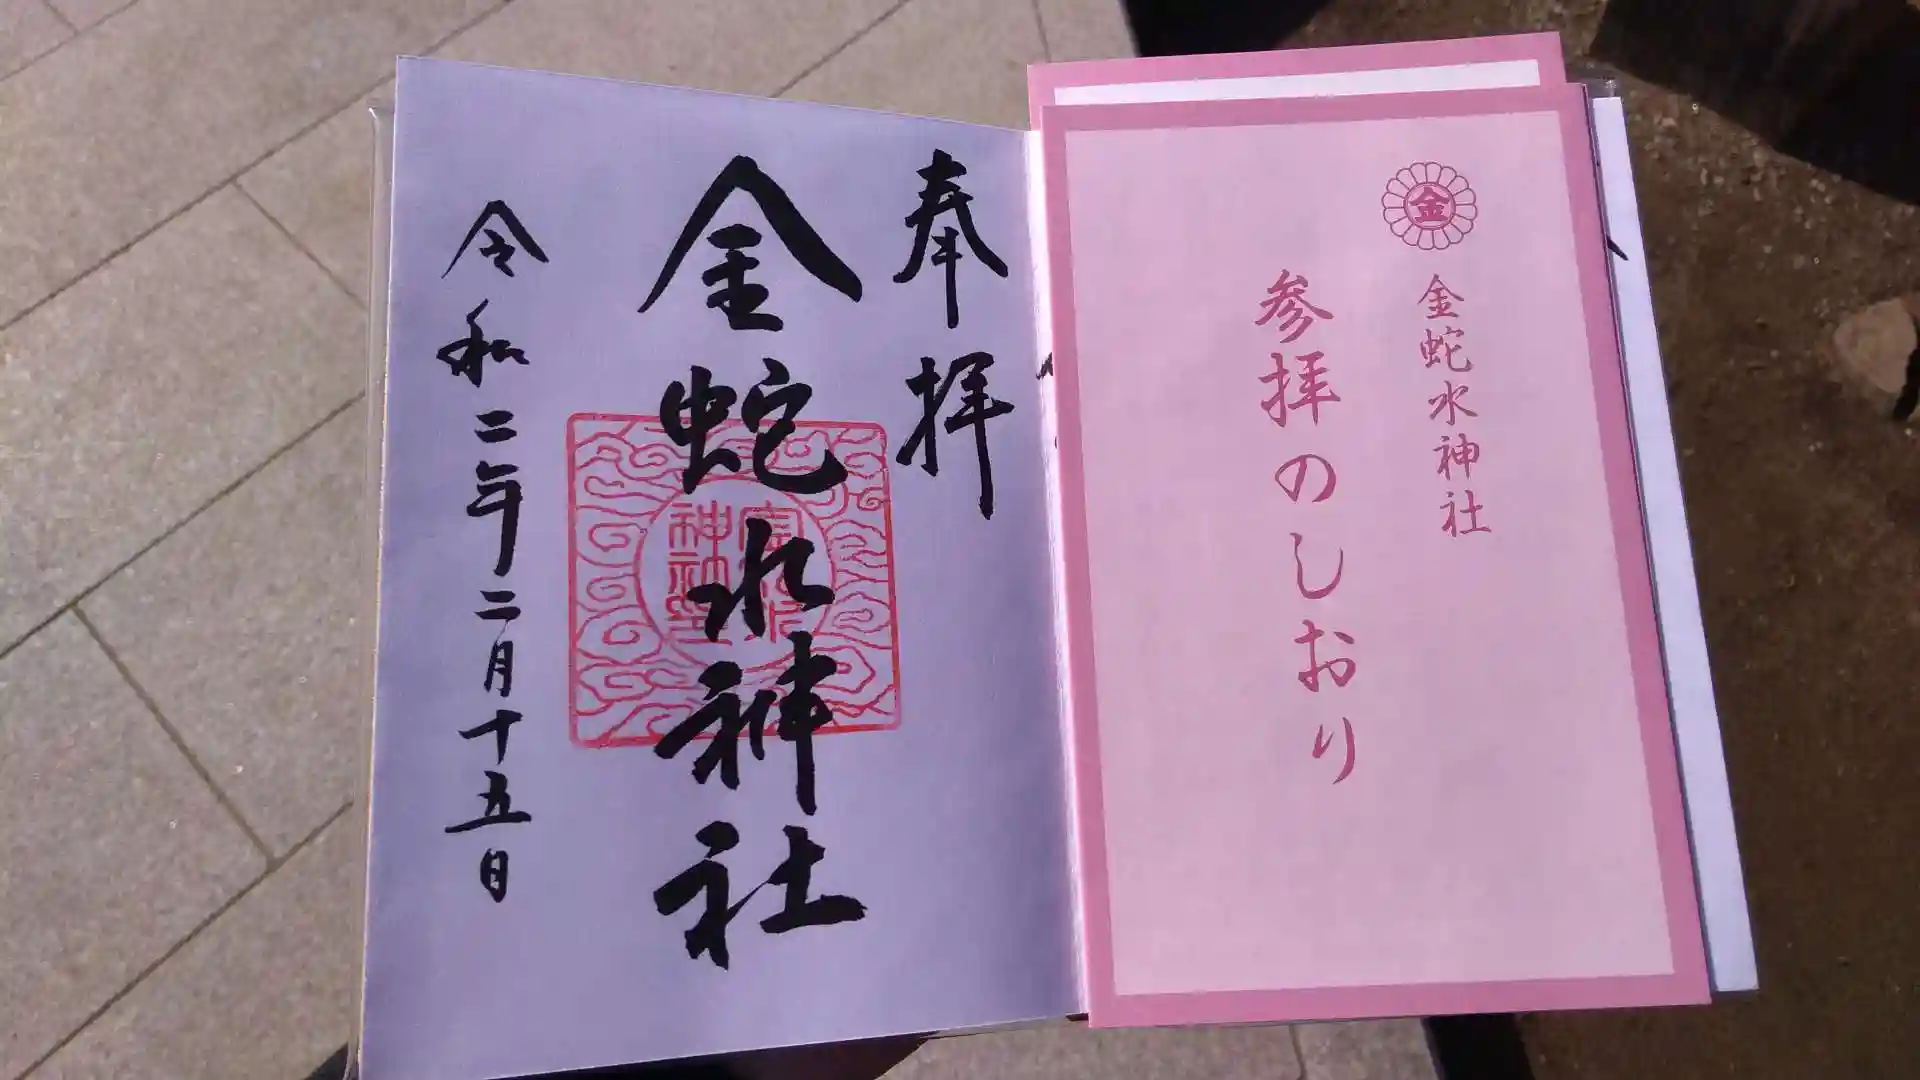 金
金蛇水神社
参拝のしおり
奉拝
金蛇水神社
令和二年二月十五日